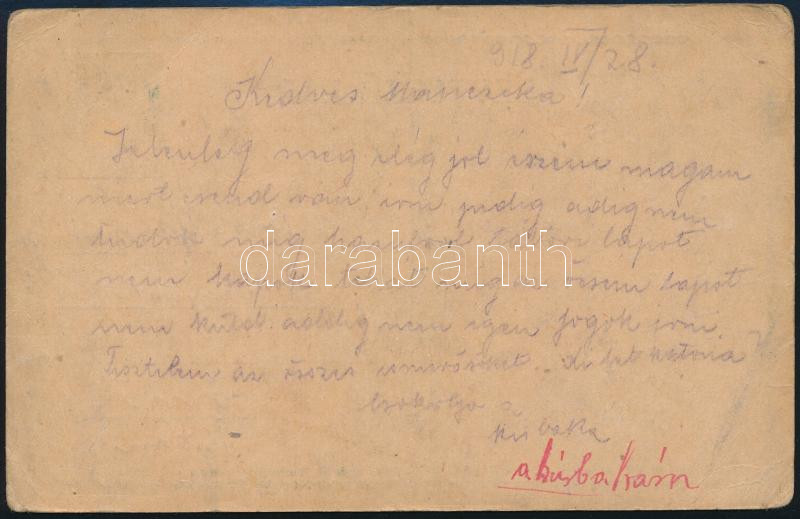 918. IV/28.
Kedves Manczika!
Jelenleg meg elég jol érzem magam
mert csend van, irni pedig adig nem
tudok mig lapot
nem kapok öcsém lapot
nem küld addig nem igen fogok irni.
Tisztelem az összes ismerősöket.
csokolja a
kis baka
a kisbakám
darabanth